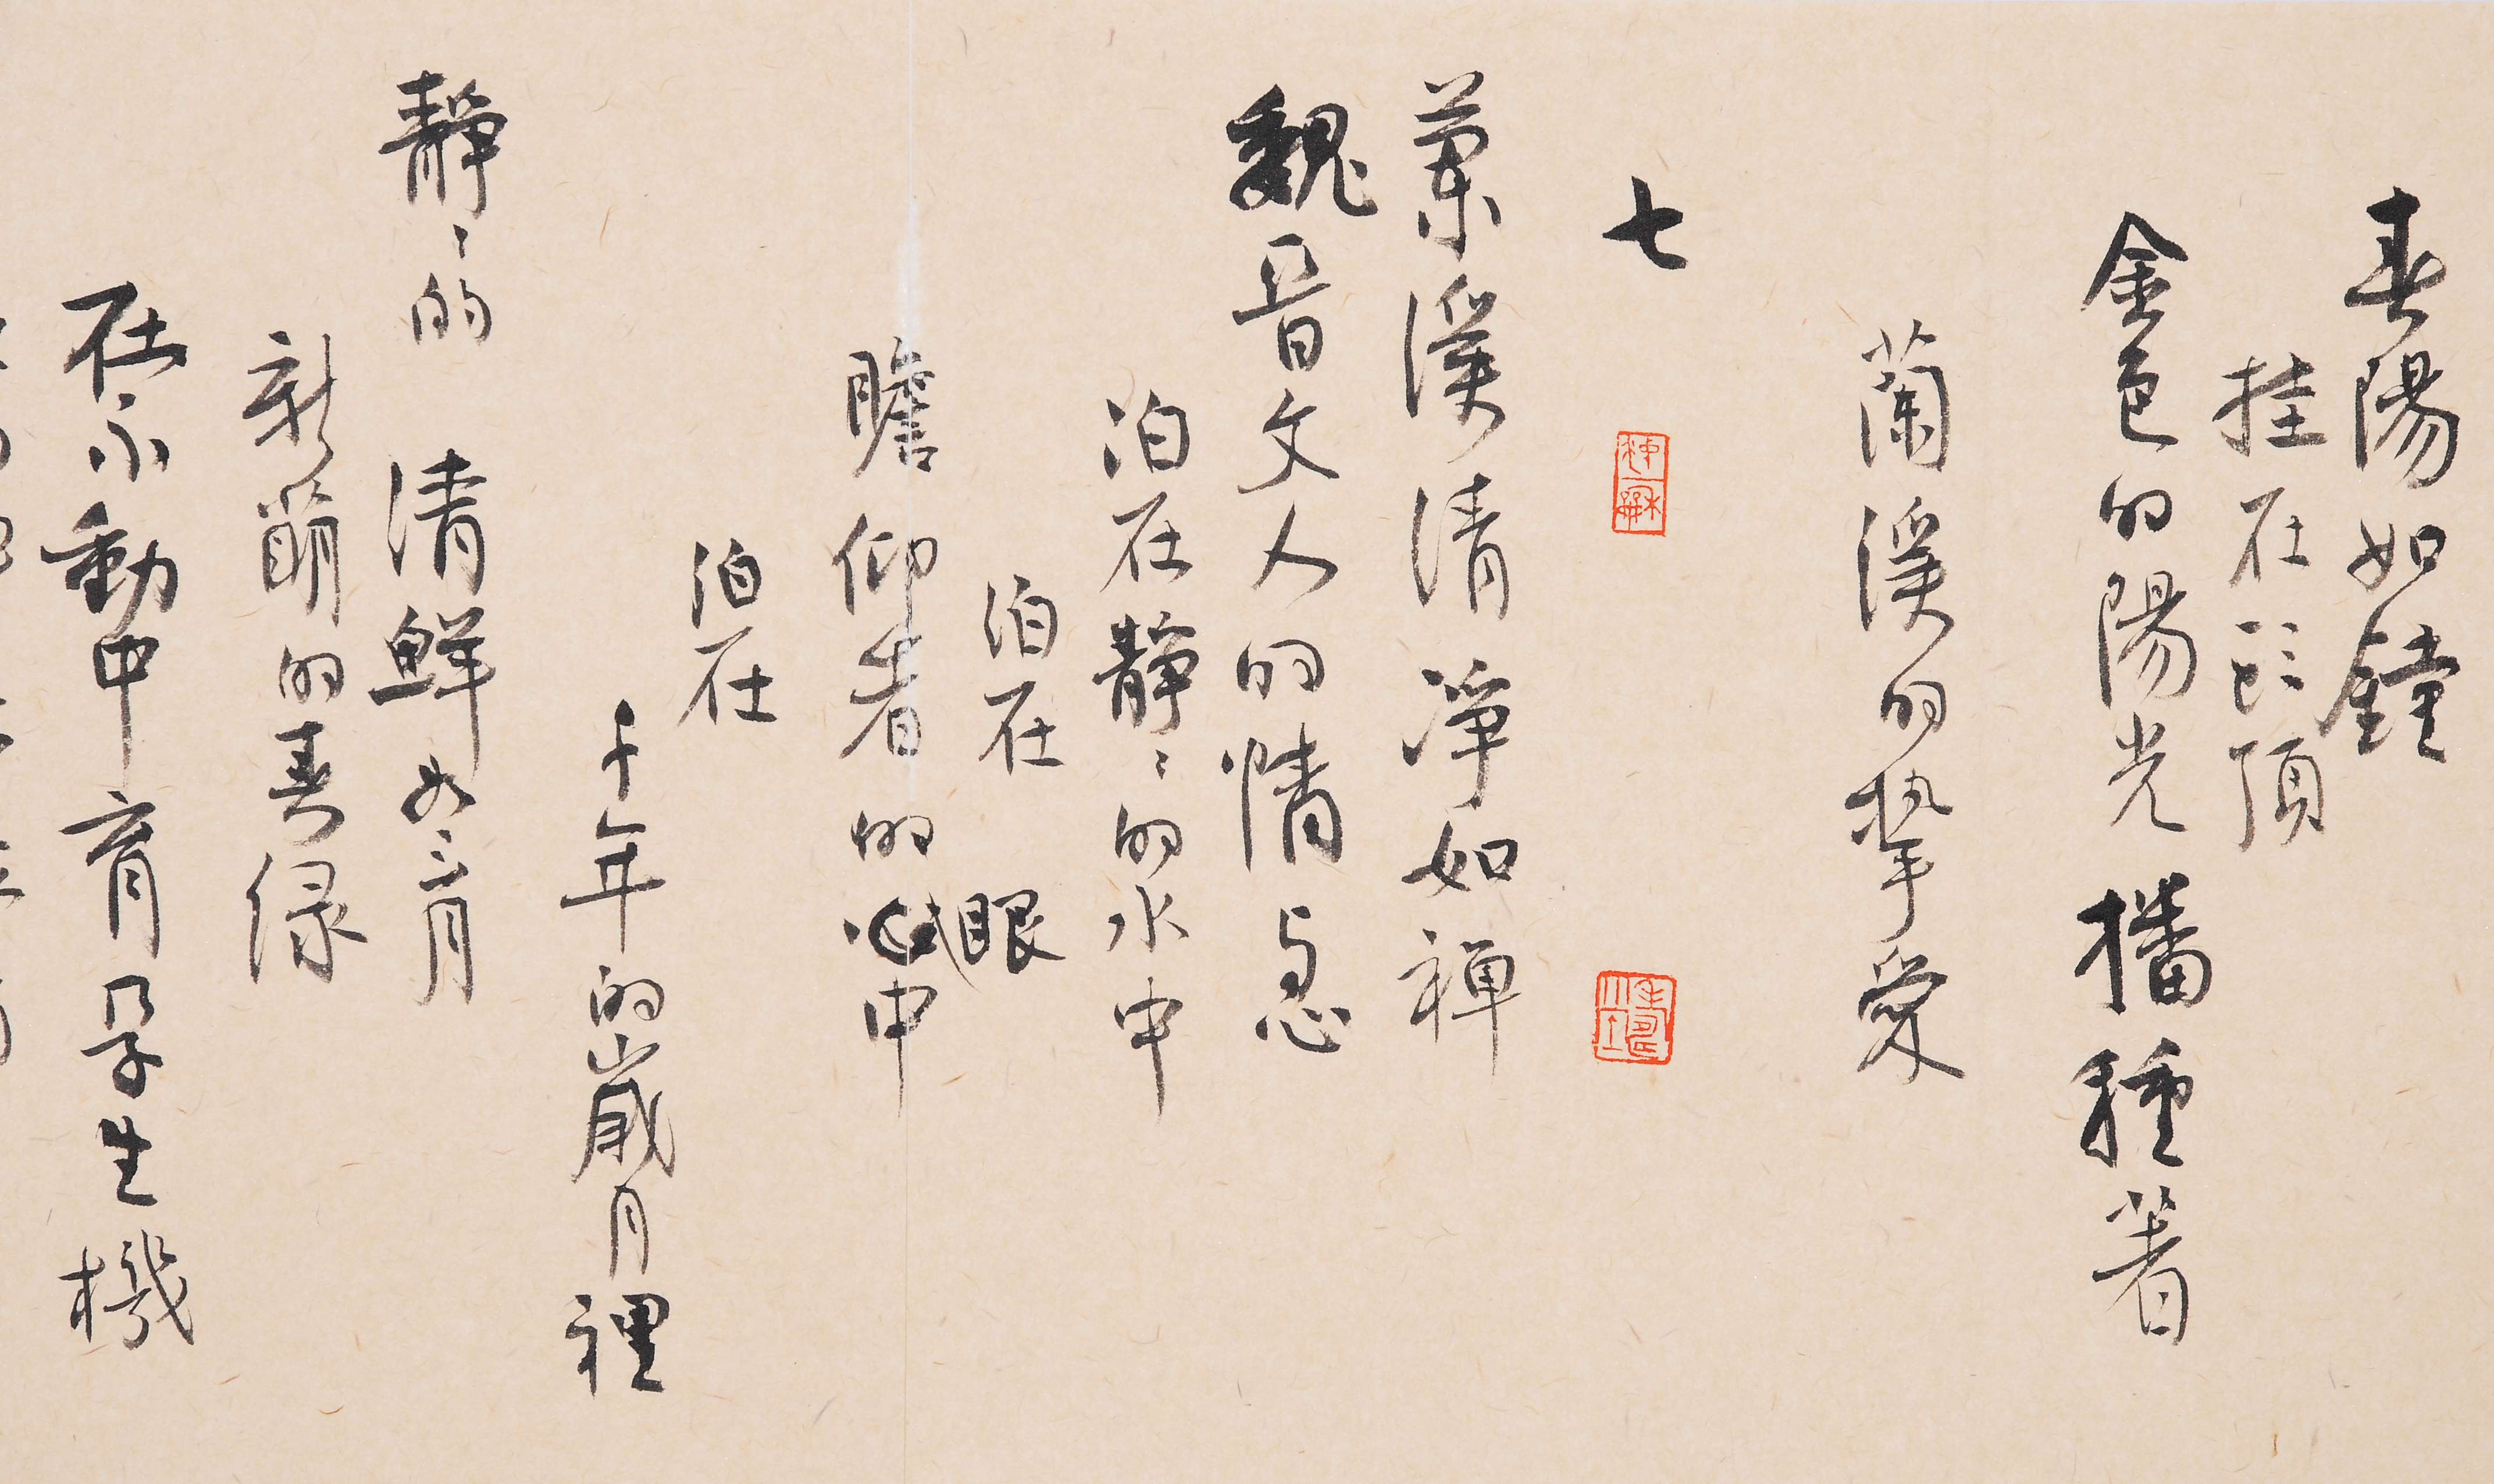 春陽如鐘
挂在頭頂
金色的陽光播種著
蘭溪的摯愛
七
蘭溪清凈如禪
魏晋文人的情与忌
泊在靜〻的水中
泊在 眼
瞻仰者的 中
泊在
千年的歲月裡
靜〻的 清鮮如三月
新萌的春绿
在不動中育孕生機